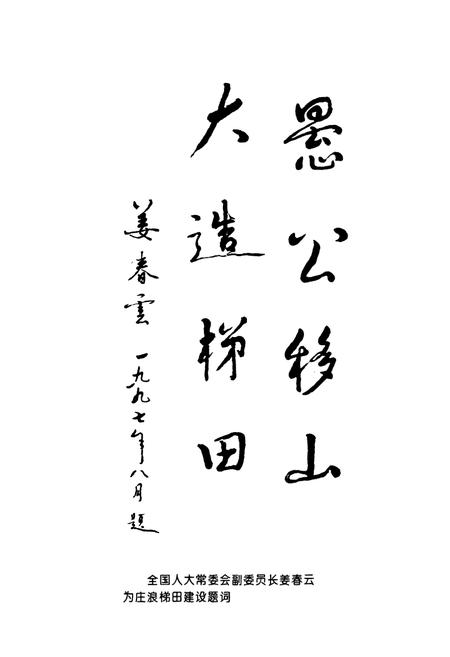 愚公移山
大造梯田
姜春雲 一九九七年八月题
全国人大常委会副委员长姜春云
为庄浪梯田建设题词